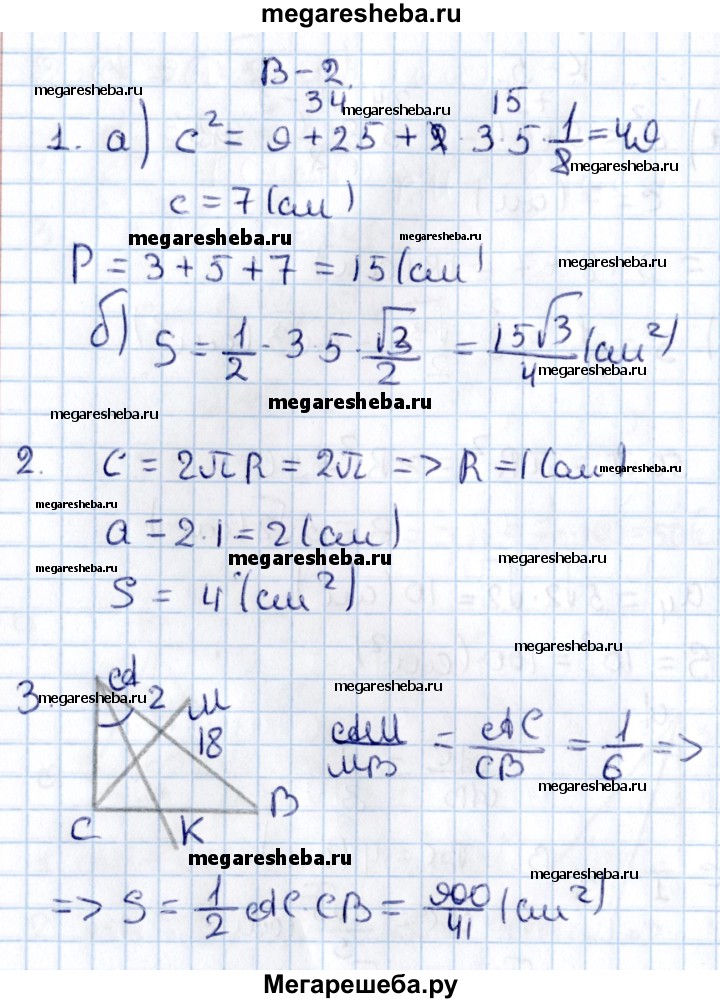 megaresheba.ru
В-2.
megaresheba.ru
34 megaresheba.ru 15
1. а) c² = 9 + 25 + 2 · 3 · 5 · 1/8 = 49
megaresheba.ru
c = 7 (см)
megaresheba.ru megaresheba.ru
P = 3 + 5 + 7 = 15 (см)
б) S = 1/2 · 3 · 5 · √3/2 = 15√3/4 (см²)
megaresheba.ru
megaresheba.ru
megaresheba.ru
2. C = 2πR = 2π => R = 1 (см)
megaresheba.ru
megaresheba.ru
a = 2 · 1 = 2 (см)
megaresheba.ru
megaresheba.ru
megaresheba.ru
S = 4 (см²)
megaresheba.ru
3. A 2 M
megaresheba.ru
megaresheba.ru
18
AM/MB = AC/CB = 1/6 =>
megaresheba.ru
C K B
megaresheba.ru
megaresheba.ru
=> S = 1/2 AC · CB = 900/41 (см²)
Мегарешеба.ру